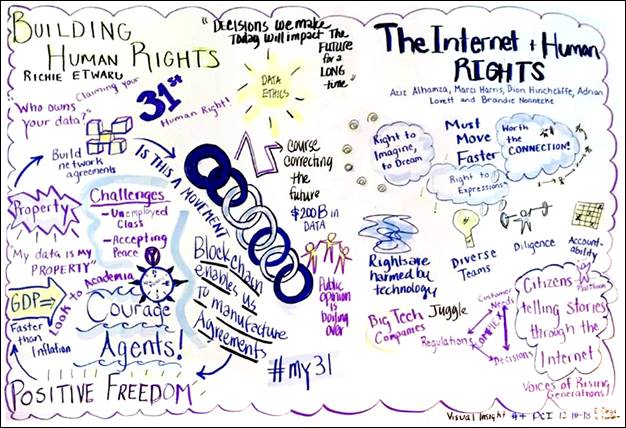 BUILDING
HUMAN RIGHTS
RICHIE ETWARU
"DECISIONS we make
Today will impact THE
FUTURE
for a
LONG
time"
"Who owns
your data?"
Claiming your
31st
Human Right!
DATA
ETHICS
Build
network
agreements
IS THIS A MOVEMENT
COURSE
correcting
the
future
$200B in
DATA
Property
Challenges
- Unemployed
Class
- Accepting
Peace
My data is my
PROPERTY"
Look to Academia
GDP
Faster
than
Inflation
Courage
Agents!
POSITIVE FREEDOM
Blockchain
enables us
to manufacture
Agreements
Public
opinion is
boiling
over
#my31
The Internet + Human
RIGHTS
Aziz Alhamza, Marci Harris, Dion Hinchcliffe, Adrian
Lovett and Brandie Nonnecke
Right to
Imagine,
to Dream
Must
Move
Faster
Worth the
CONNECTION!
Right to
Expressions
Rights are
harmed by
technology
Diverse
Teams
Diligence
Accountability
Big Tech
Companies
Juggle
Customer
Needs
Regulations
CONFLICT
Decisions
Citizens
telling Stories
through the
Internet
Voices of Rising
Generations
Visual Insight
PCI 12-10-18